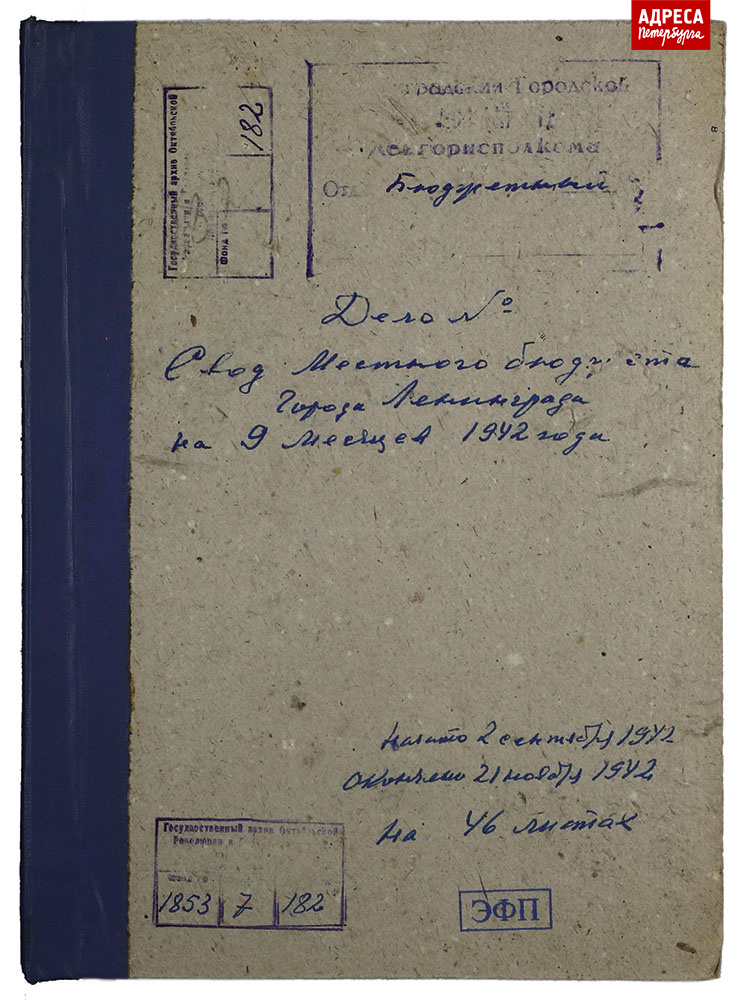 АДРЕСА
Петербурга
Государственный архив Октябрьской
182
Фонд №
Городской
Ленгорисполкома
Отд
Бюджетный
Дело №
Свод Местного бюджета
Города Ленинграда
на 9 месяцев 1942 года
Начато 2 сентября 1942
Окончено 21 ноября 1942
На 46 листах
Государственный архив Октябрьской
Революции и
1853 7 182
ЭФП